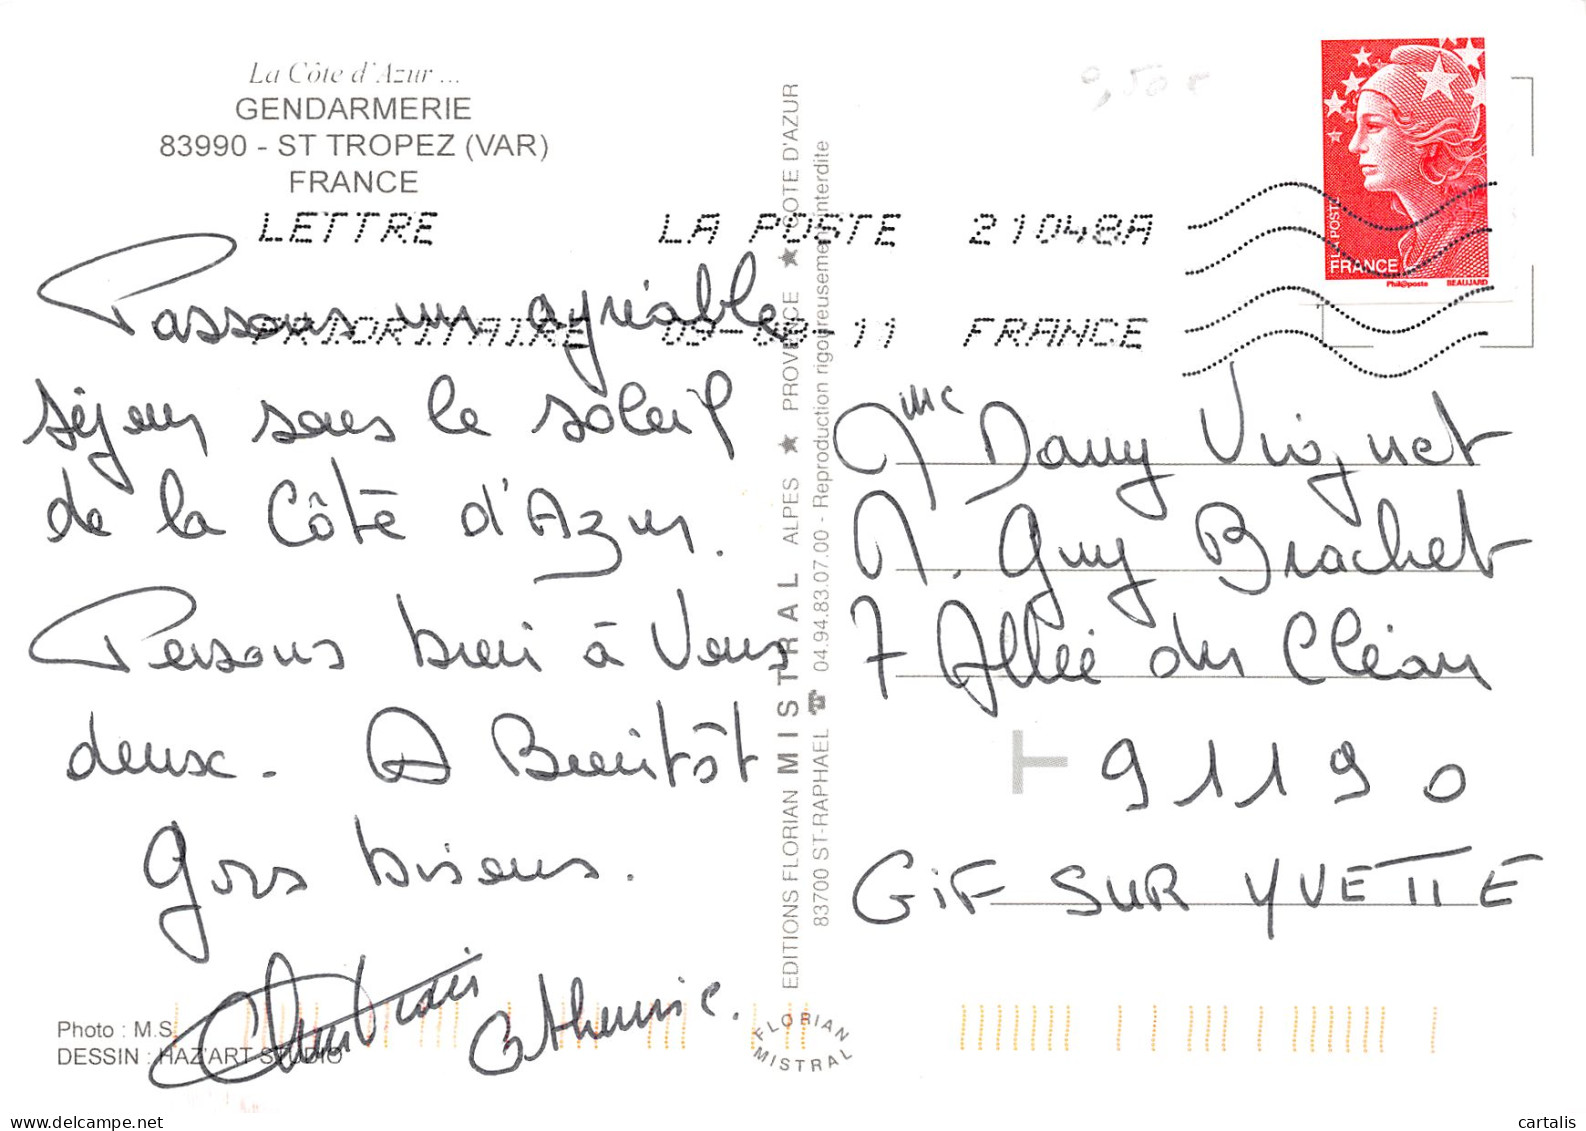 La Côte d'Azur ...
GENDARMERIE
83990 - ST TROPEZ (VAR)
FRANCE
LETTRE
PRIORITAIRE
LA POSTE 21048A
-11 FRANCE
Passons un agréable
séjour sous le soleil
de la Côte d'Azur.
Pensons bien à Vous
deux. A Bientôt
Gros bisous.
Christian Catherine.
Photo : M.S.
DESSIN : HAZ'ART STUDIO
EDITIONS FLORIAN MISTRAL ALPES ★ PROVENCE ★ COTE D'AZUR
83700 ST-RAPHAEL ☎ 04.94.83.07.00 - Reproduction rigoureusement interdite
FLORIAN
MISTRAL
LA POSTE
FRANCE
Phil@poste BEAUJARD
Mme Dany Viognet
M. Guy Brachet
7 Allée du Cléau
T 91190
GiF SUR YVETTE
Delcampe.net
cartalis